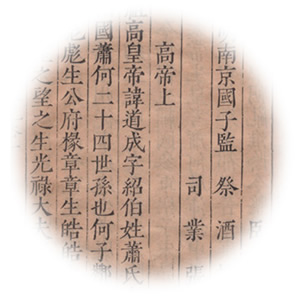 南京國子監祭酒
司業張
高帝上
高皇帝諱道成字紹伯姓蕭氏
國蕭何二十四世孫也何子酇
彪生公府掾章章生皓皓
之望之生光祿大